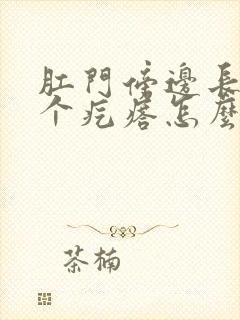 肛門傍邊長
个疙瘩怎麼
茶楠